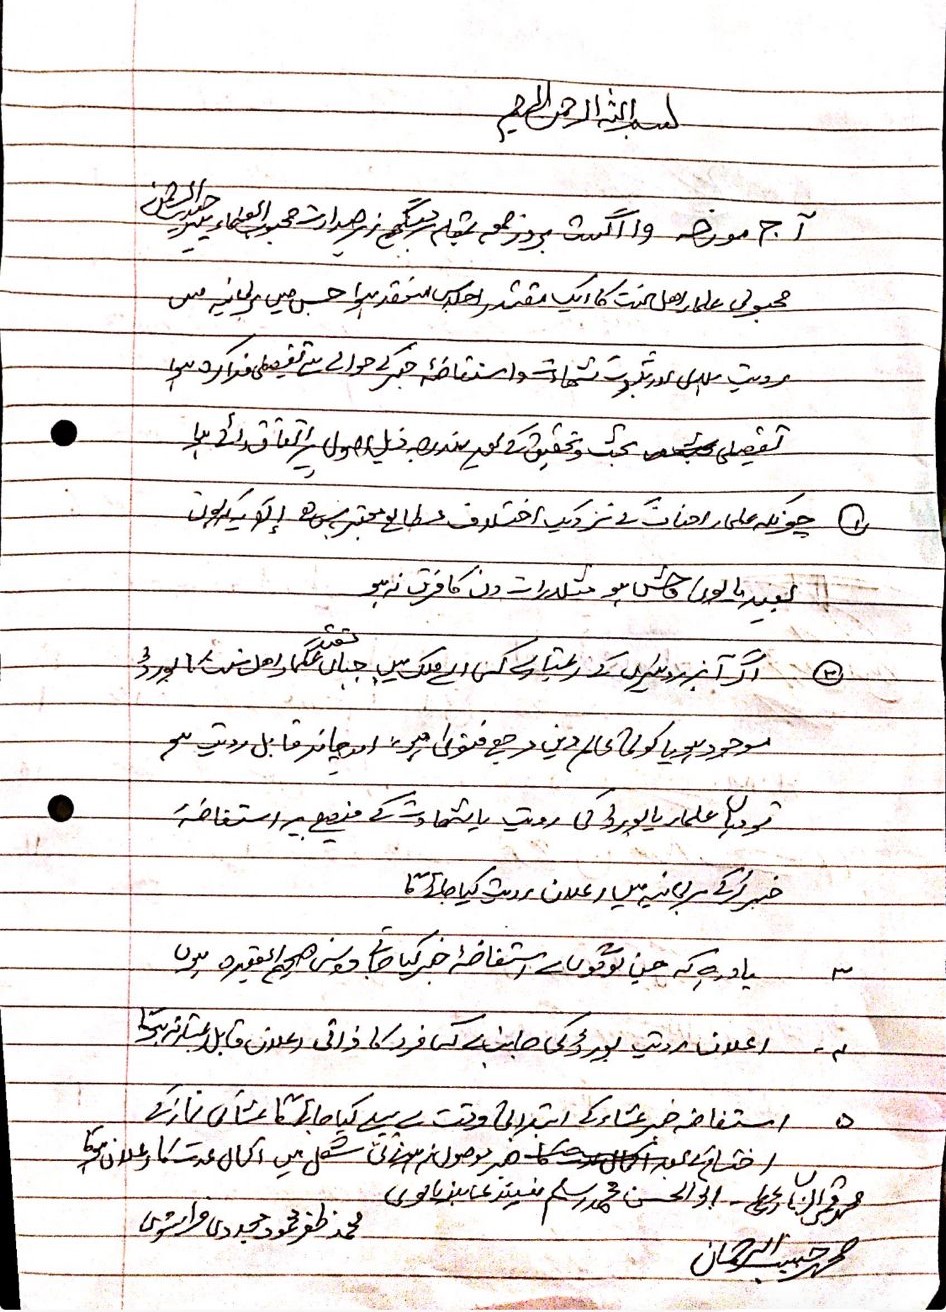 بسم اللہ الرحمن الرحیم
آج مورخہ ۱۹ اگست بروز جمعہ بمقام برمنگھم زیر صدارت محبوب العلماء پیر حبیب الرحمن
محبوبی علماء اہل سنت کا ایک مقتدر اجلاس منعقد ہوا جس میں برطانیہ میں
رویت ہلال اور ثبوت شہادت و استفاضۂ خبر کے حوالے سے تفصیلی مذاکرہ ہوا
تفصیلی بحث و تحقیق کے بعد مندرجہ ذیل اصول پر اتفاق رائے ہوا
① چونکہ علماء احناف کے نزدیک اختلاف مطالع معتبر نہیں ہے إلّا یہ کہ بون
بعید یا بون فاحش ہو مثلا رات دن کا فرق نہ ہو
② اگر آبزرویٹری کے اعتبار سے کسی ایسے ملک میں جہاں مقتدر علماء اہل سنت کا بورڈ
موجود ہو یا کوئی عالم دین مرجع فتوی ہو اور چاند قابل رویت ہو
تو وہاں علماء یا بورڈ کی رویت یا شہادت کے فیصلے پر استفاضۂ
خبر کرکے برطانیہ میں اعلان رویت کیا جائے گا
۳ یاد رہے کہ جن لوگوں سے استفاضۂ خبر کیا جائے وہ سنی صحیح العقیدہ ہوں
۴۔ اعلان رویت بورڈ کی جانب سے کسی فرد کا ذاتی اعلان قابل اعتبار نہ ہوگا
۵ استفاضہ خبر عشاء کے ابتدائی وقت سے پہلے کیا جائے گا عشاء کی نماز کے
اختتام کے بعد خبر موصول نہ ہونے کی شکل میں اکمال عدت کا اعلان ہوگا
محمد قمر الزماں اعظمی۔ ابو الحسن محمد
محمد ظفر محمود مجددی فراشوی
محمد حبیب الرحمان